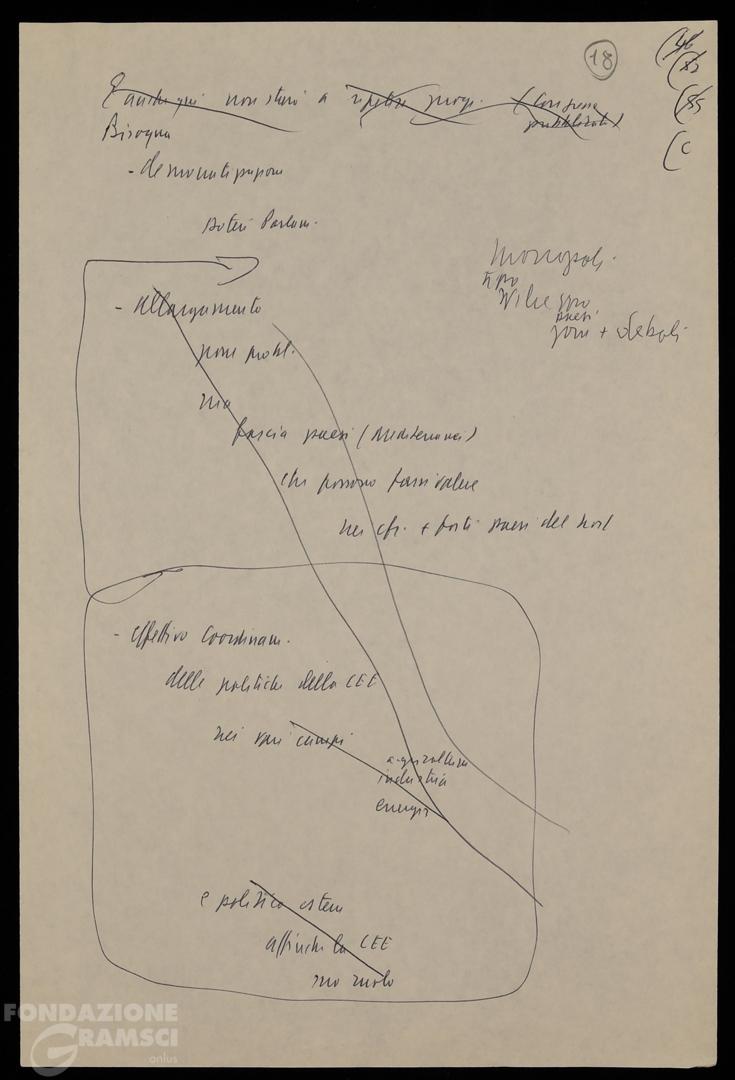 18
46
83
85
(C
E anche qui non starò a ripetere progr. (Congresso
pubblicati)
Bisogna
- democratizzazione
Poteri Parlam.
Monopoli
tipo
paesi
zone + deboli
- allargamento
pone probl.
ma
fascia paesi (Mediterranei)
che possono farsi valere
nei cfr. + forti paesi del nord
- effettivo coordinam.
delle politiche della CEE
nei vari campi
agricoltura
industria
energia
e politica estera
affinché la CEE
suo ruolo
FONDAZIONE
GRAMSCI
onlus